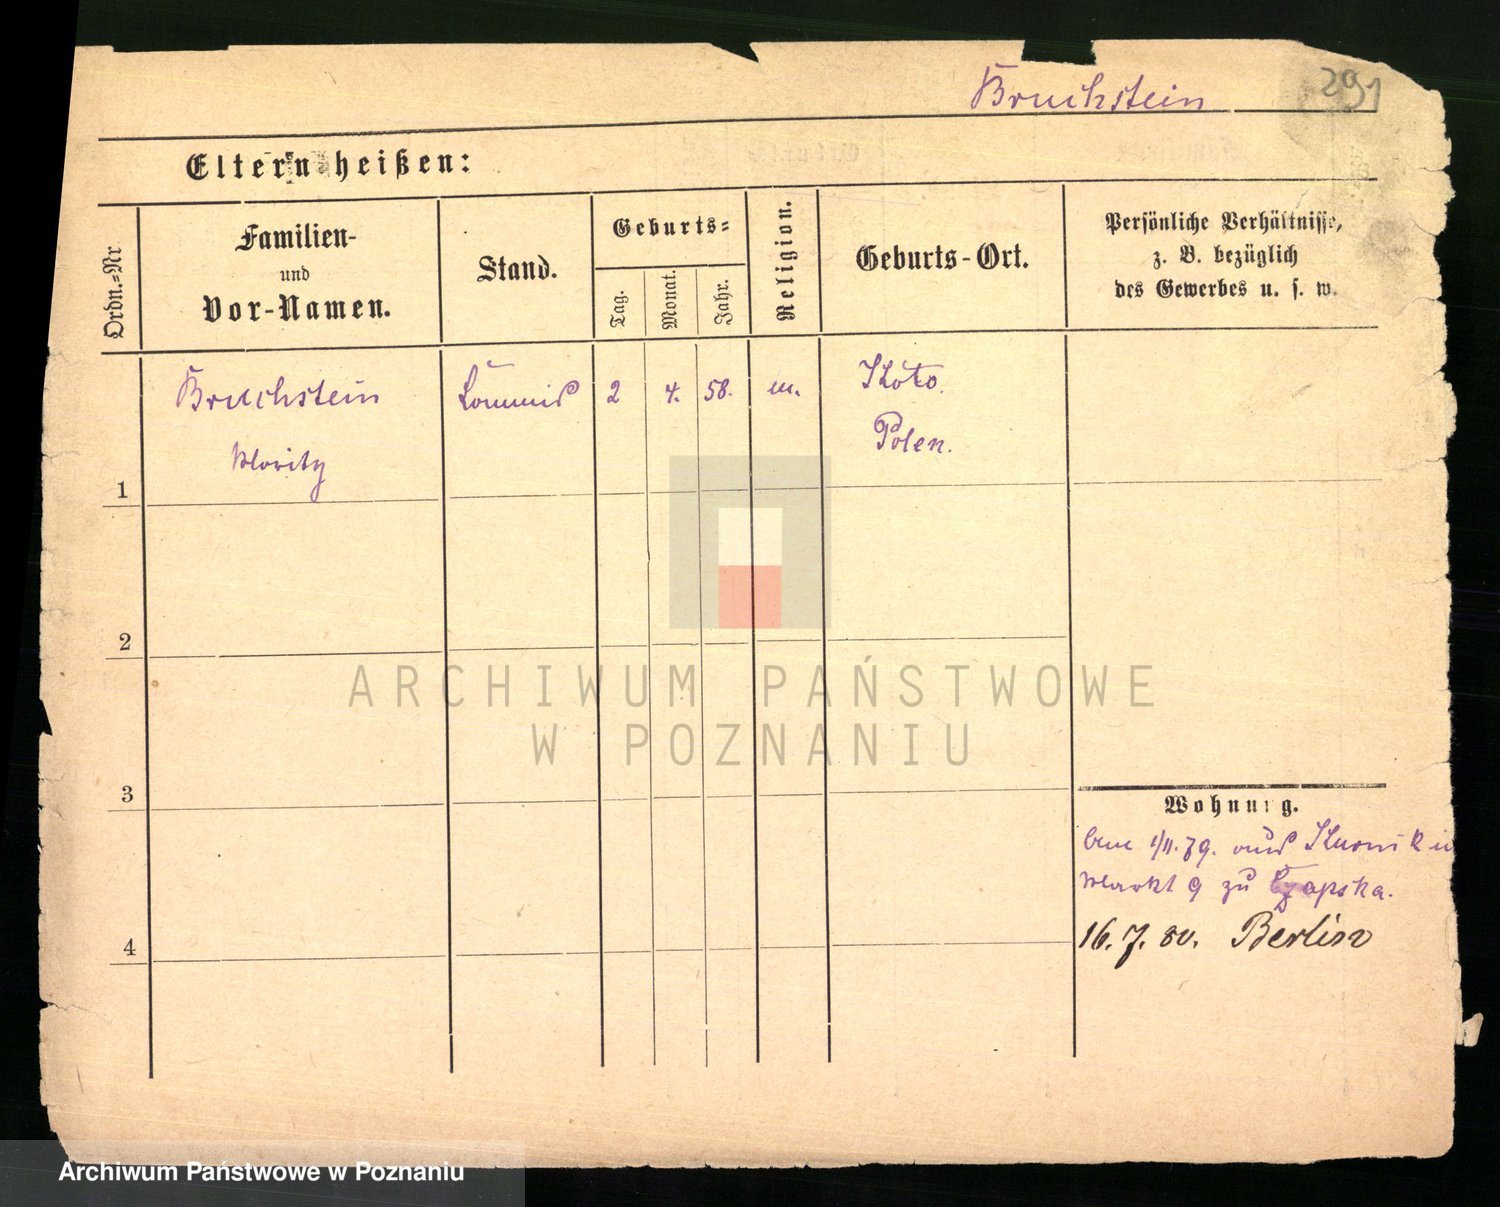 Bruchstein
291
Eltern heißen:
Ordn.=Nr.
Familien-
und
Vor-Namen.
Stand.
Geburts=
Tag.
Monat.
Jahr.
Religion.
Geburts-Ort.
Persönliche Verhältnisse,
z. B. bezüglich
des Gewerbes u. s. w.
1
Bruchstein
Moritz
Commis
2
4.
58.
m.
Polen.
2
3
4
Wohnung.
1/11.79.
Markt 9 zu Czapska.
16.7.80. Berlin
ARCHIWUM PAŃSTWOWE
W POZNANIU
Archiwum Państwowe w Poznaniu